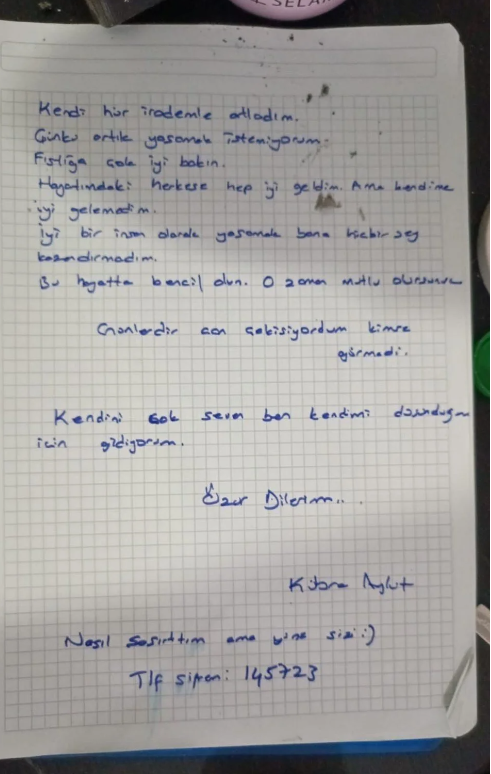 SELA
Kendi hür irademle atladım.
Çünkü artık yaşamak istemiyorum.
Fıstığa çok iyi bakın.
Hayatımdaki herkese hep iyi geldim. Ama kendime
iyi gelemedim.
İyi bir insan olarak yaşamak bana hiçbir şey
kazandırmadım.
Bu hayatta bencil olun. O zaman mutlu olursunuz
Günlerdir can çekişiyordum kimse
görmedi.
Kendini çok seven ben kendimi düşündüğüm
için gidiyorum.
Özür Dilerim...
Kübra
Nasıl şaşırttım ama yine sizi :)
Tlf şifrem: 145723